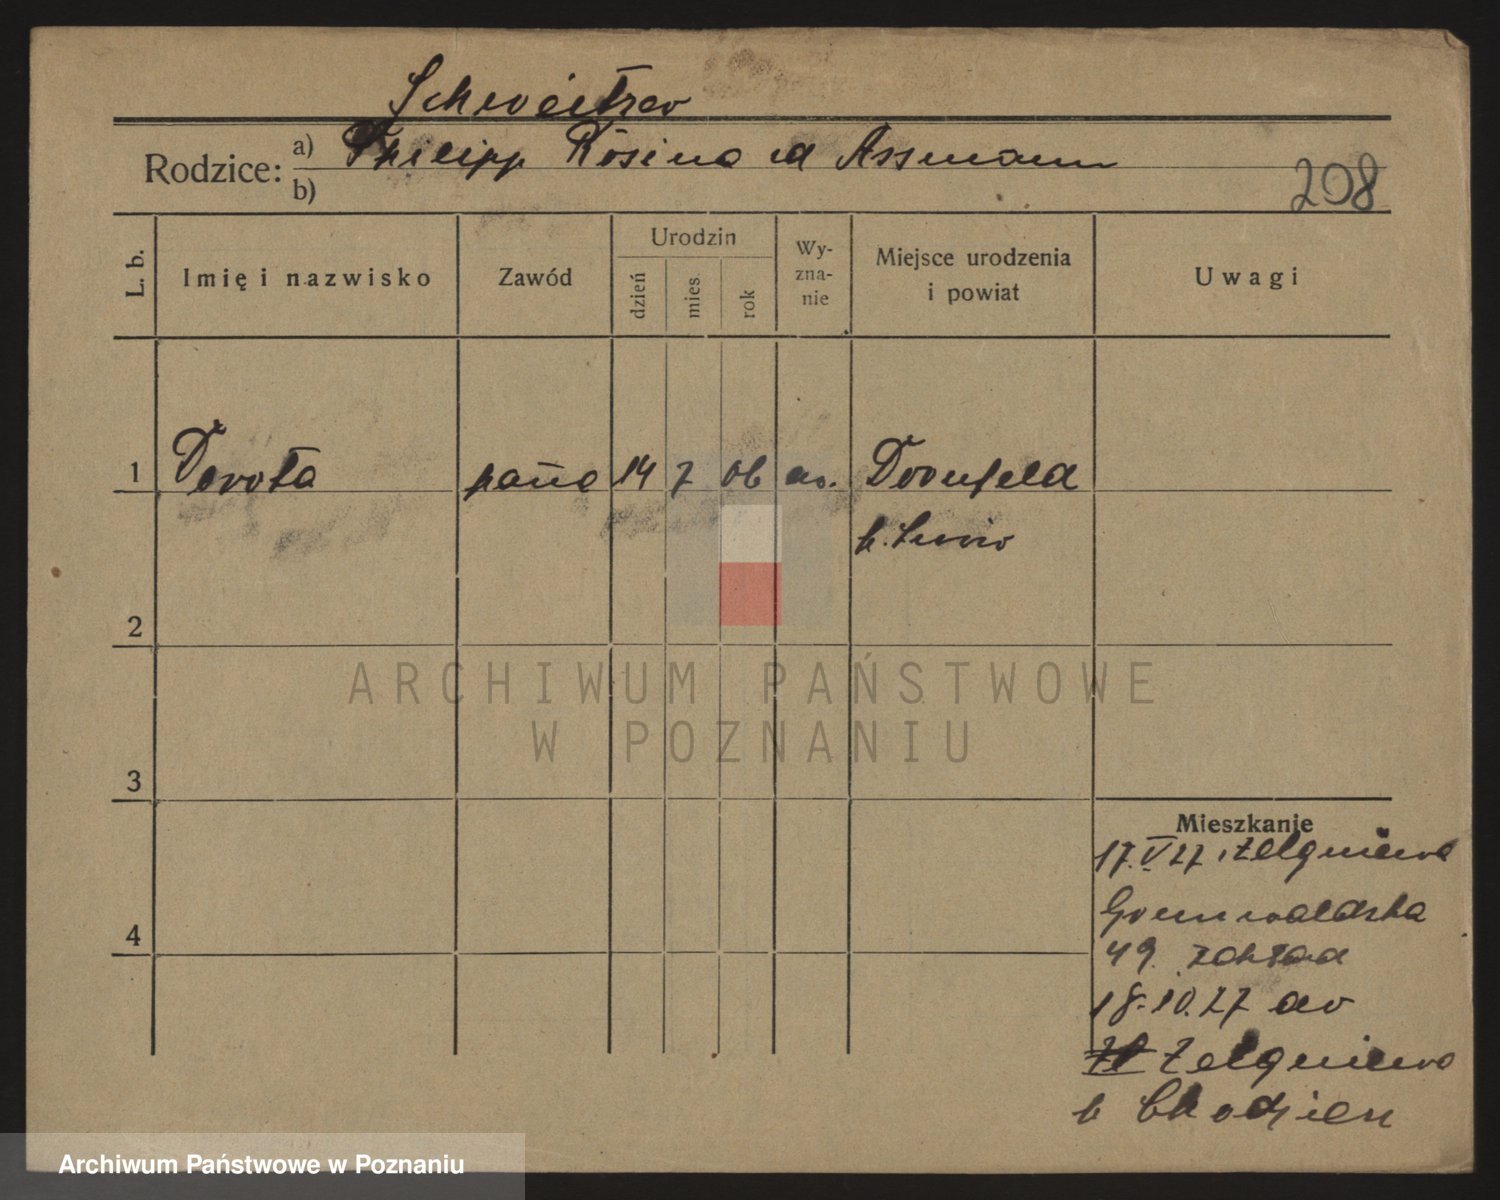 Schweitzer
Rodzice: a) Philipp Rosina d Assmann
b)
208
L. b. Imię i nazwisko Zawód Urodzin dzień mies. rok Wy-zna-nie Miejsce urodzenia i powiat Uwagi
1 Dorota 14 7 06 Dornfeld
p. Lwów
2
ARCHIWUM PAŃSTWOWE
W POZNANIU
3
Mieszkanie
17.V 27 Zelgniewa
Grunwaldzka
4
49.
18.10.27 do
Zelgniewo
p Chodzież
Archiwum Państwowe w Poznaniu